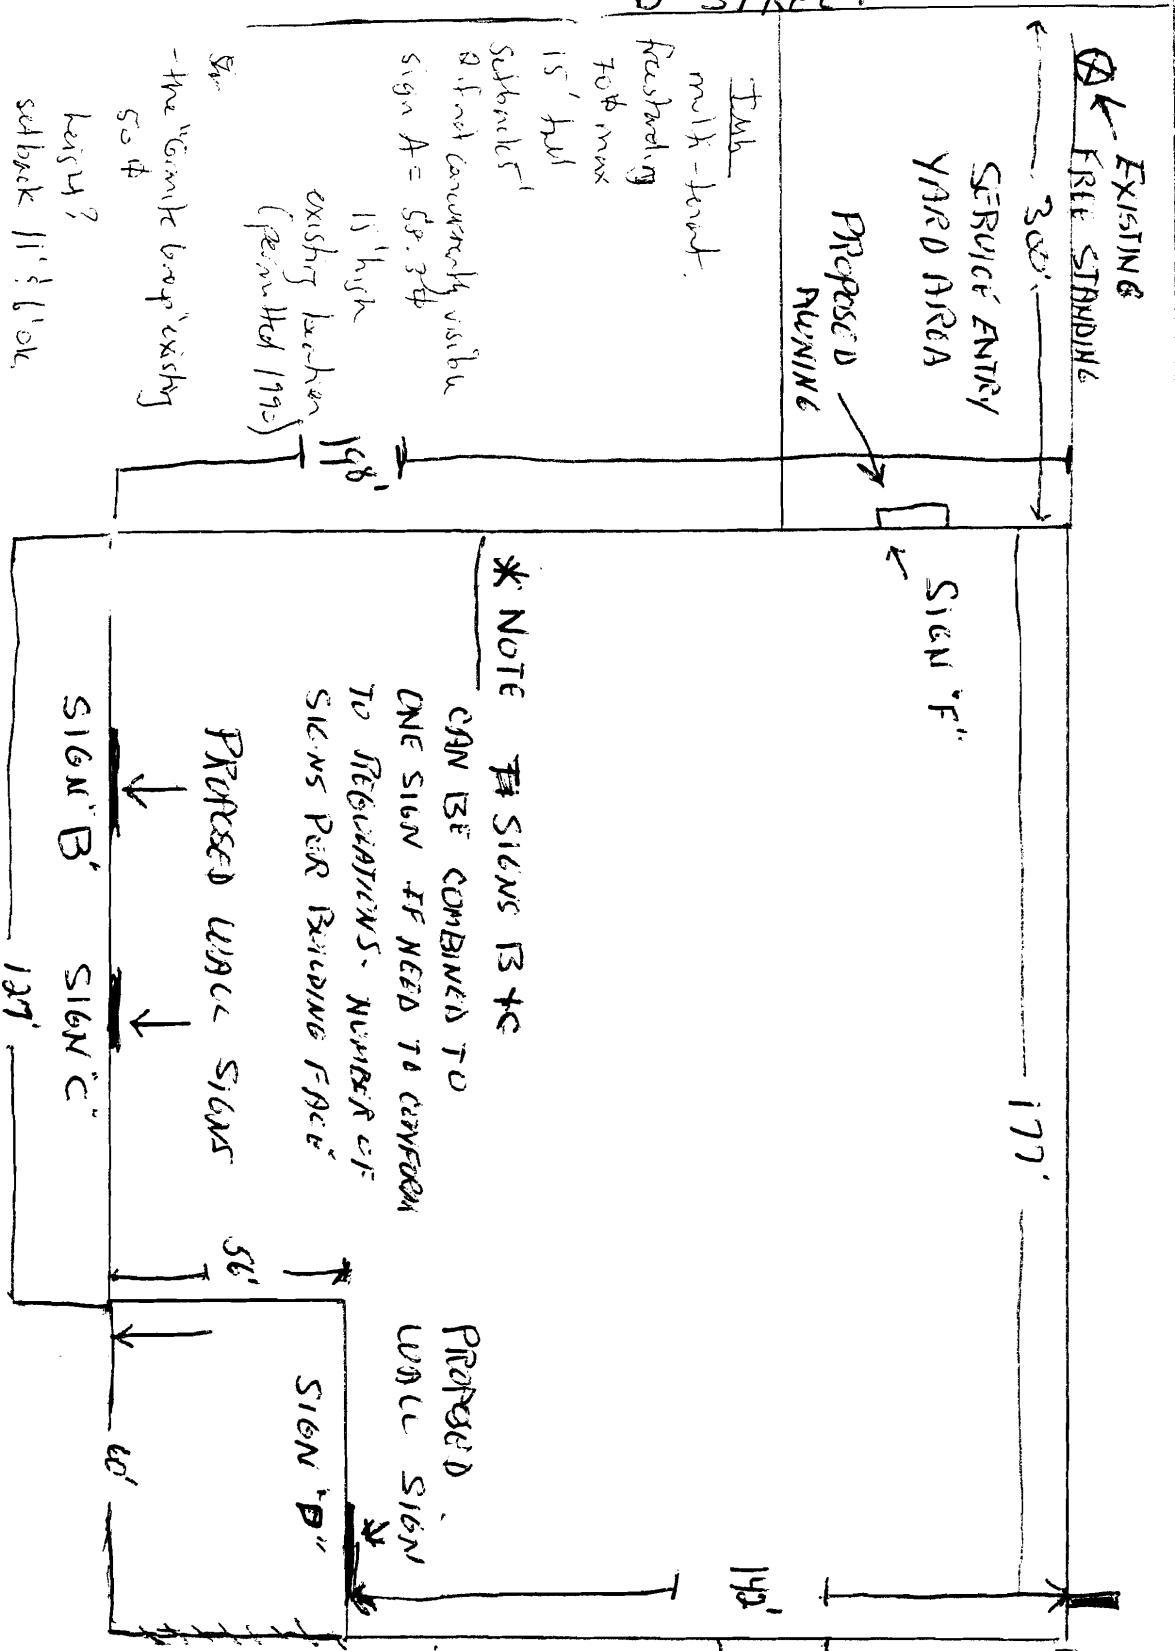 STREET
Ⓐ ← EXISTING
FREE STANDING
300'
SERVICE ENTRY
YARD AREA
PROPOSED
AWNING
multi-tenant.
freestanding
70# max
15' tall
Setbacks
2 if not concurrently visible
sign A = 58.3#
15' high
existing location
(permitted 1992)
existing
50#
height?
setback 11' & 6' ok.
198'
SIGN "F"
177'
* NOTE SIGNS B + C
CAN BE COMBINED TO
ONE SIGN IF NEED TO CONFORM
TO REGULATIONS. NUMBER OF
SIGNS PER BUILDING FACE
PROPOSED WALL SIGNS
SIGN "B" SIGN "C"
127'
56'
PROPOSED
WALL SIGN
SIGN "D"
60'
142'